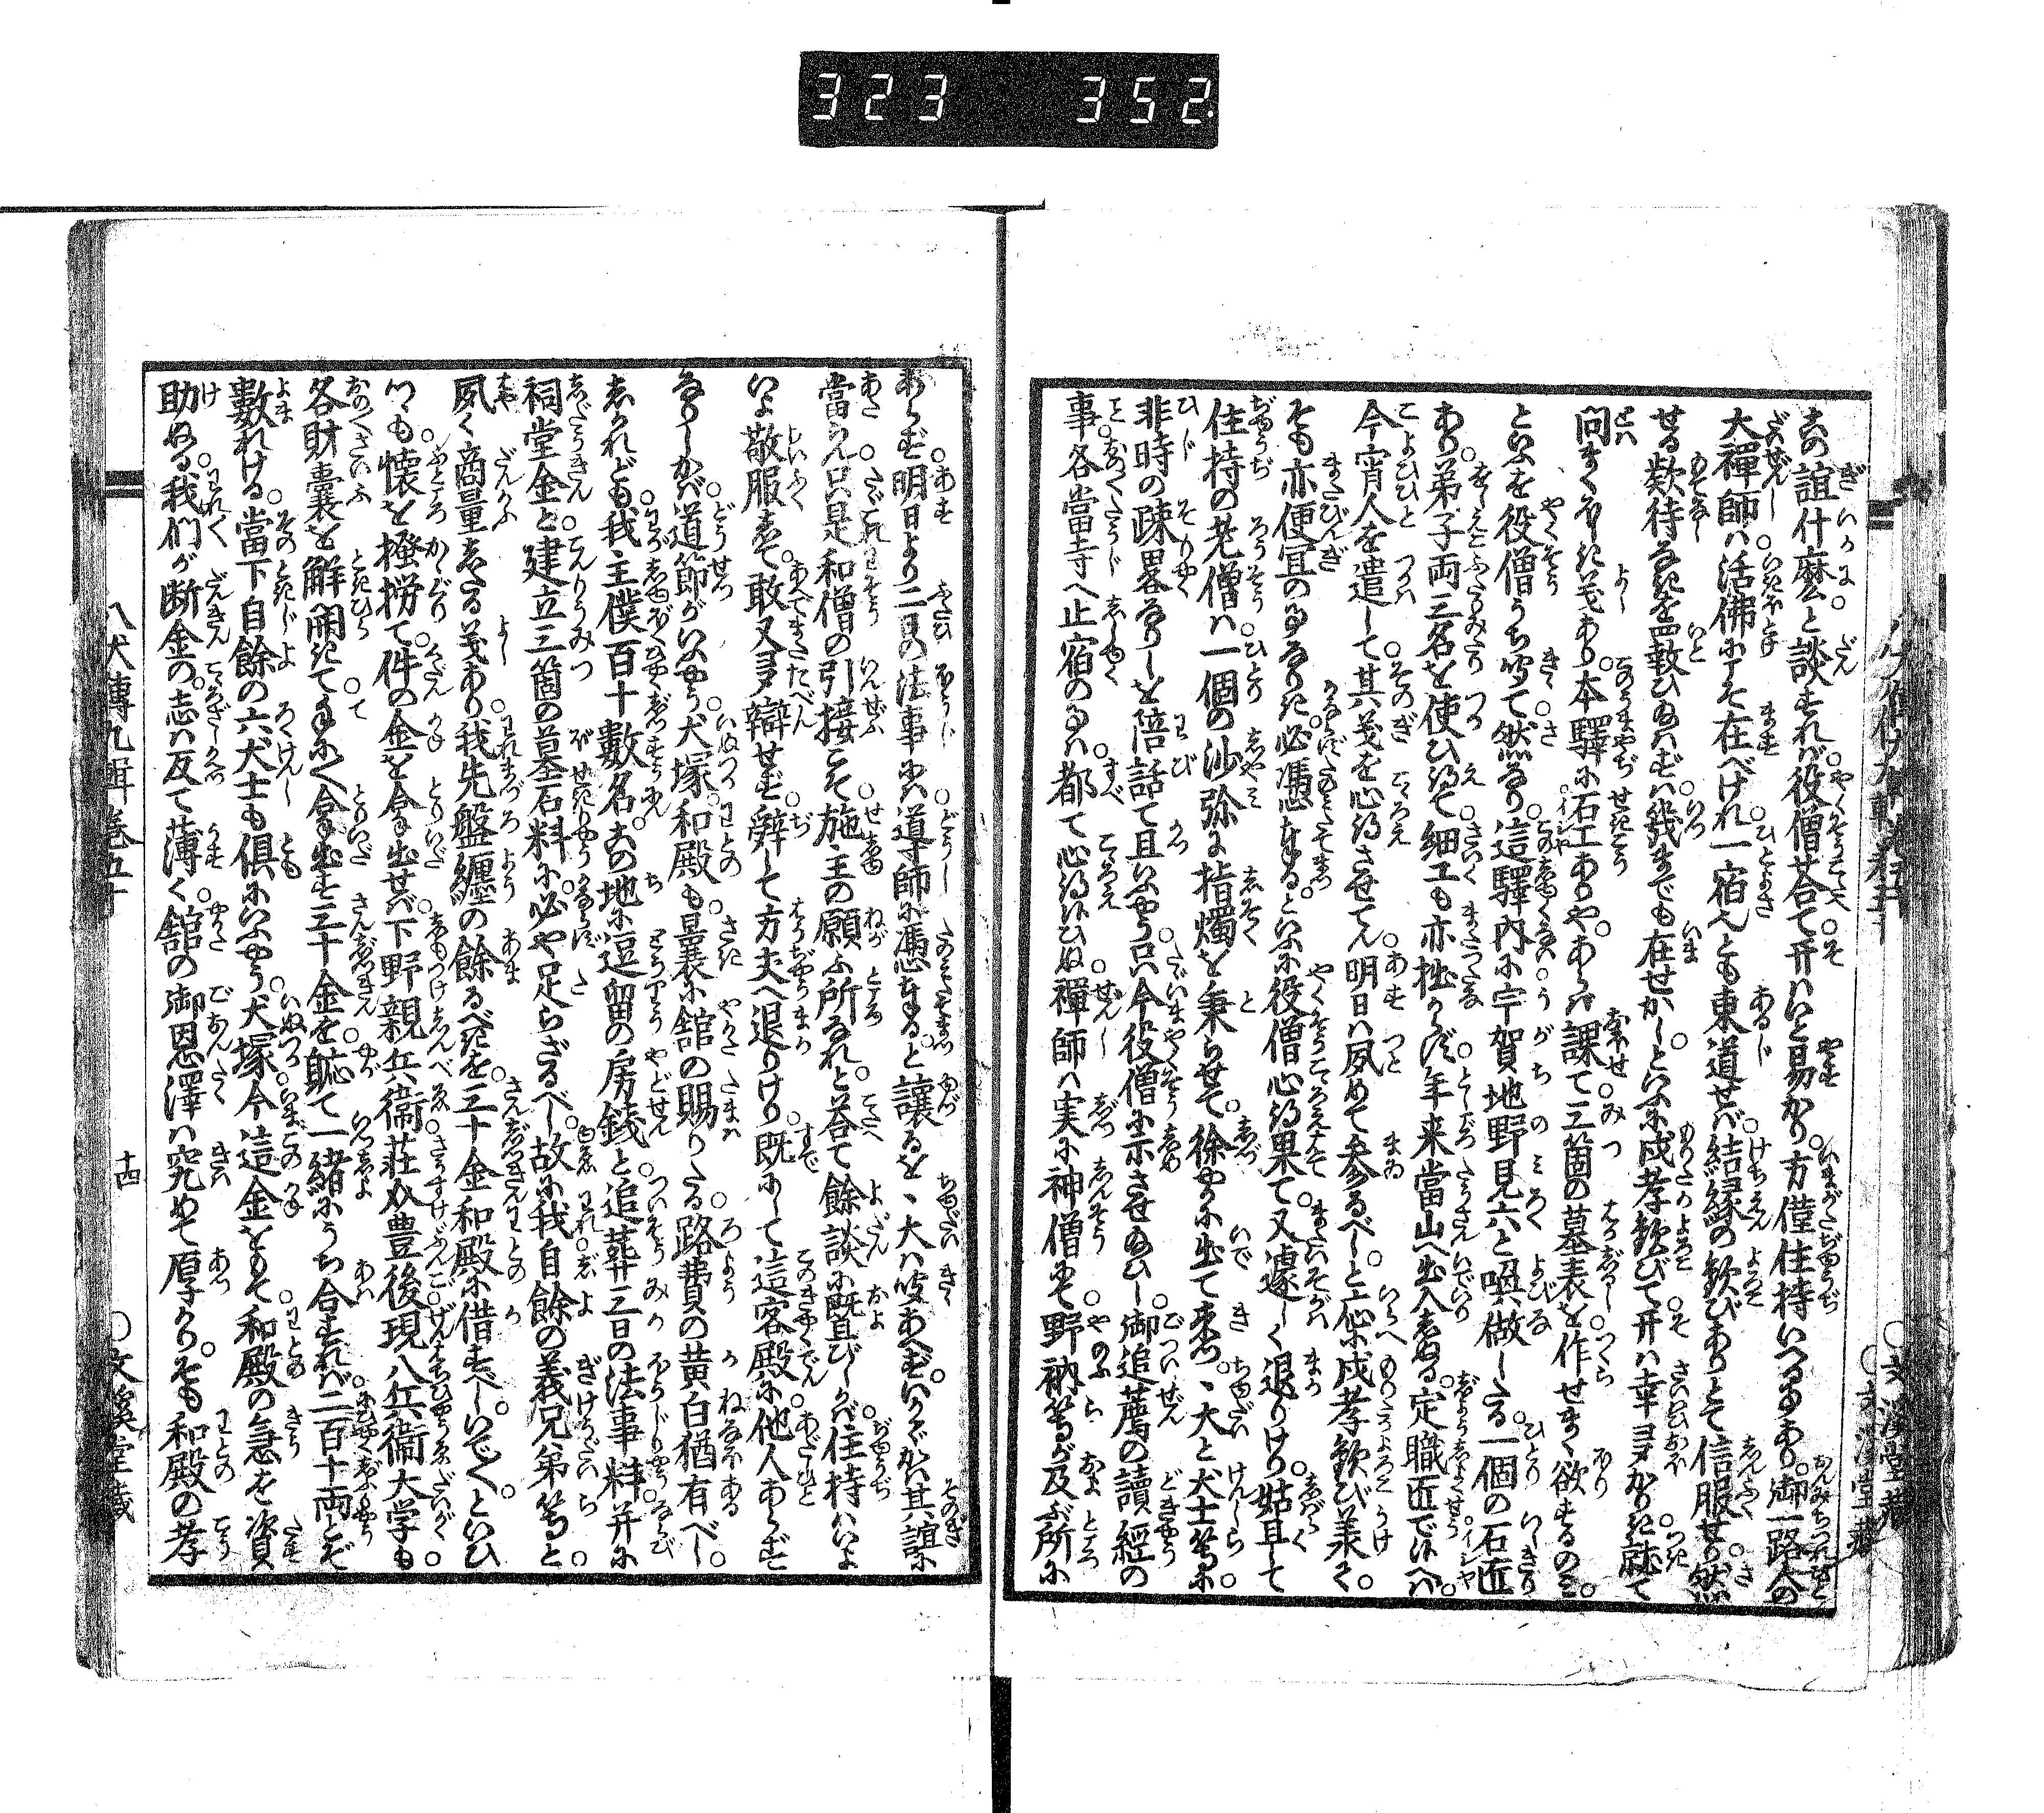 323 352
去の誼什麼と談ずれば役僧答て开はいと易かり方僅住持いへるあり御一路人の
大禪師ハ活佛にこそ在べけれ一宿也とも東道せば結縁の歓びありとて信服せり然
せる欵待なきを罪歎ひ給はずハ幾までも在せかしといふに戍孝歓びて开ハ幸ヨかりき就て
問まくほしき義あり本驛に石工ありやあらバ課て三箇の墓表を作せまく欲するのミ
といふを役僧うち听て然なり這驛内に宇賀地野見六と喚做したる一個の石匠
あり弟子両三名を使ひ得て細工も亦拙からず年来當山へ出入しぬる定職匠で候へハ
今宵人を遣して其義を心得させてん明日ハ夙めて参るべしと応に戍孝歓び羕て
そも亦便宜の事なりき必憑むなるといふに役僧心得果て又遽しく退りけり姑且して
住持の老僧ハ一個の沙弥に指燭を秉らせて徐やかに出て来つ丶大と犬士等に
非時の疎畧なりしを陪話て且いふやう只今役僧に示させ給ひし御追薦の讀經の
事各當寺へ止宿の事ハ都て心得候ひぬ禪師ハ実に神僧にて野衲等が及ぶ所に
あらず明日より三日の法事にハ導師に憑むなると讓るを丶大ハ听あへずいかでか其誼に
當らん只是和僧の引接こそ施主の願ふ所なれと答て餘談に既びしかバ住持ハいよ
いよ敬服して敢又ヨク辯せず辭して方丈へ退りけり既にして這客殿に他人あらず
なりしかバ道節がいふやう犬塚和殿も曩に舘の賜りたる路費の黄白猶有べし
しかれども我主僕百十數名去の地に逗留の房錢と追葬三日の法事料并に
祠堂金と建立三箇の墓石料に必や足らざるべし故に我自餘の義兄弟等と
夙く商量したる義あり我先盤纏の餘るべきを三十金和殿に借すべしいでいでといひ
つつも懐を掻撈て件の金を拿出せバ下野親兵衞荘介豊後現八兵衞大学も
各財囊を解開きて手に手に拿出す三十金を聢て一緒にうち合すれバ二百十両とぞ
數れける當下自餘の六犬士も倶にいふやう犬塚今這金をもて和殿の急を資
助ぬる我們が断金の志ハ反て薄く舘の御恩澤ハ究めて厚かりそも和殿の孝
八犬傳九輯巻五十
十四
○文溪堂藏